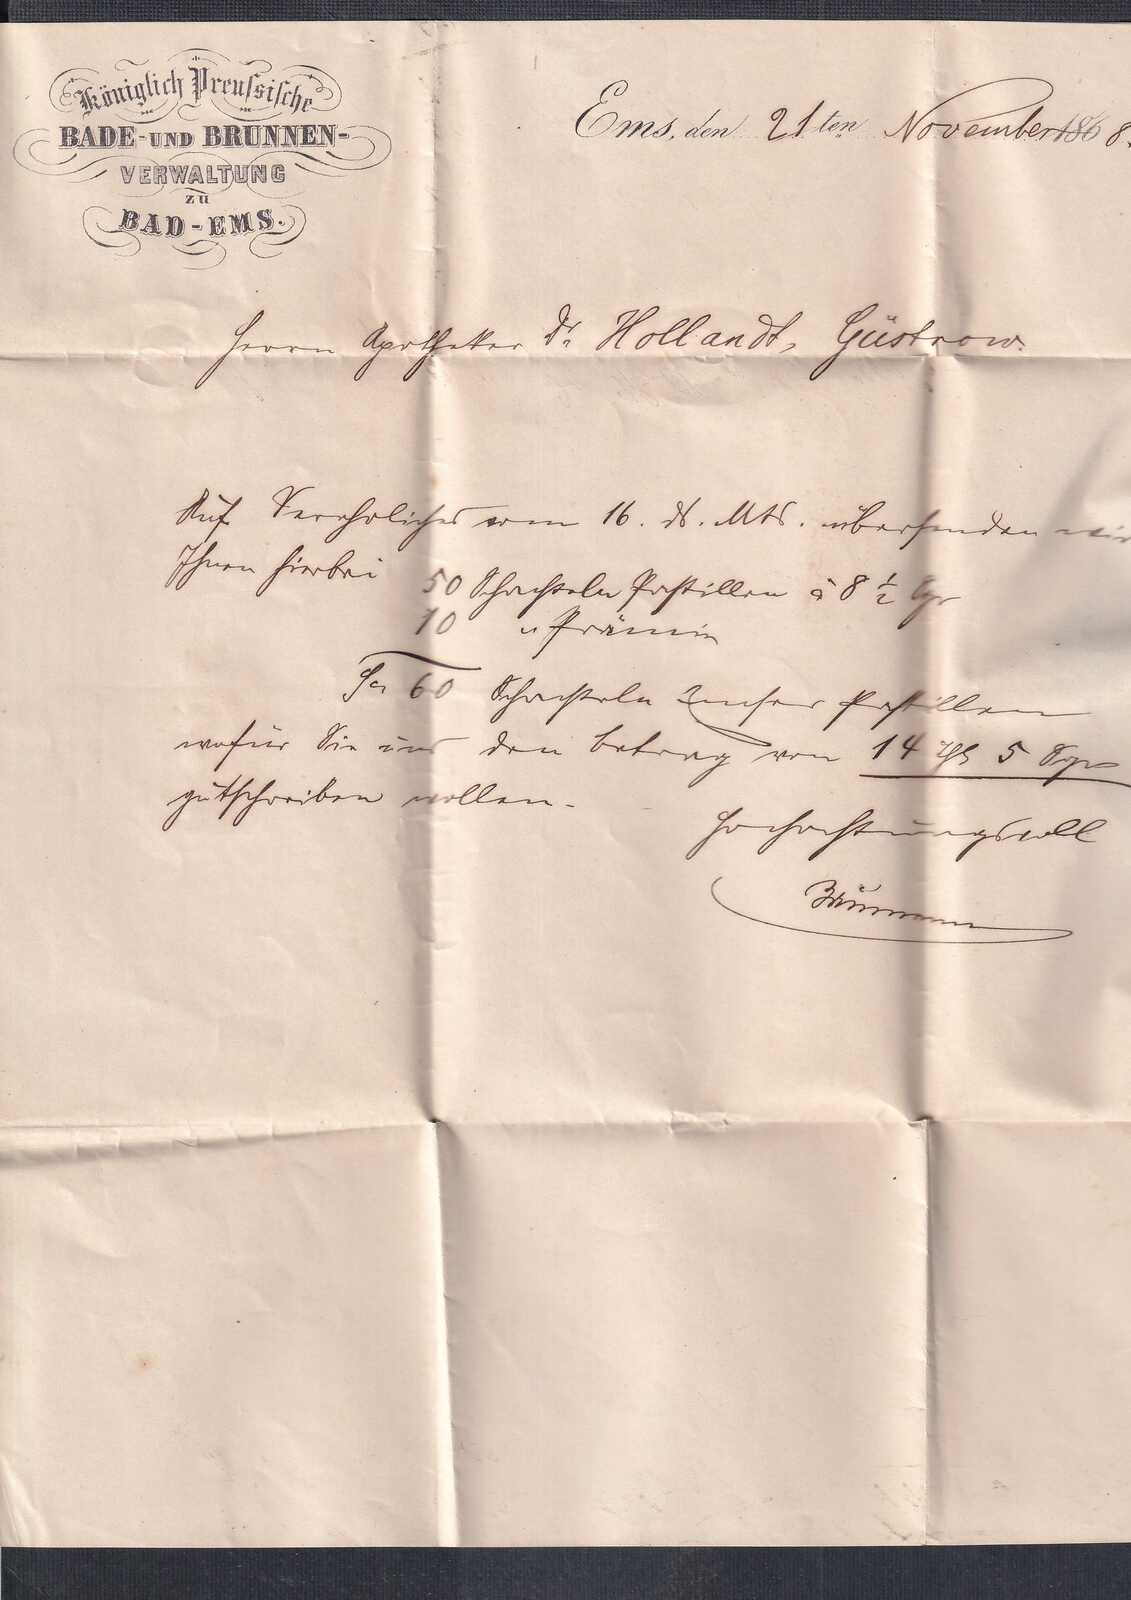 Königlich Preussische
BADE- UND BRUNNEN-
VERWALTUNG
ZU
BAD-EMS.
Ems, den 21ten November 1868.
Herrn Apotheker Dr Hollandt, Güstrow.
Auf Verehrliches vom 16. ds. Mts. übersenden wir
Ihnen hierbei 50 Schachteln Pastillen à 8 1/2 Sgr
10 " Prämie
Sa 60 Schachteln Emser Pastillen
wofür Sie uns den Betrag von 14 Th 5 Sgr
gutschreiben wollen.
Hochachtungsvoll